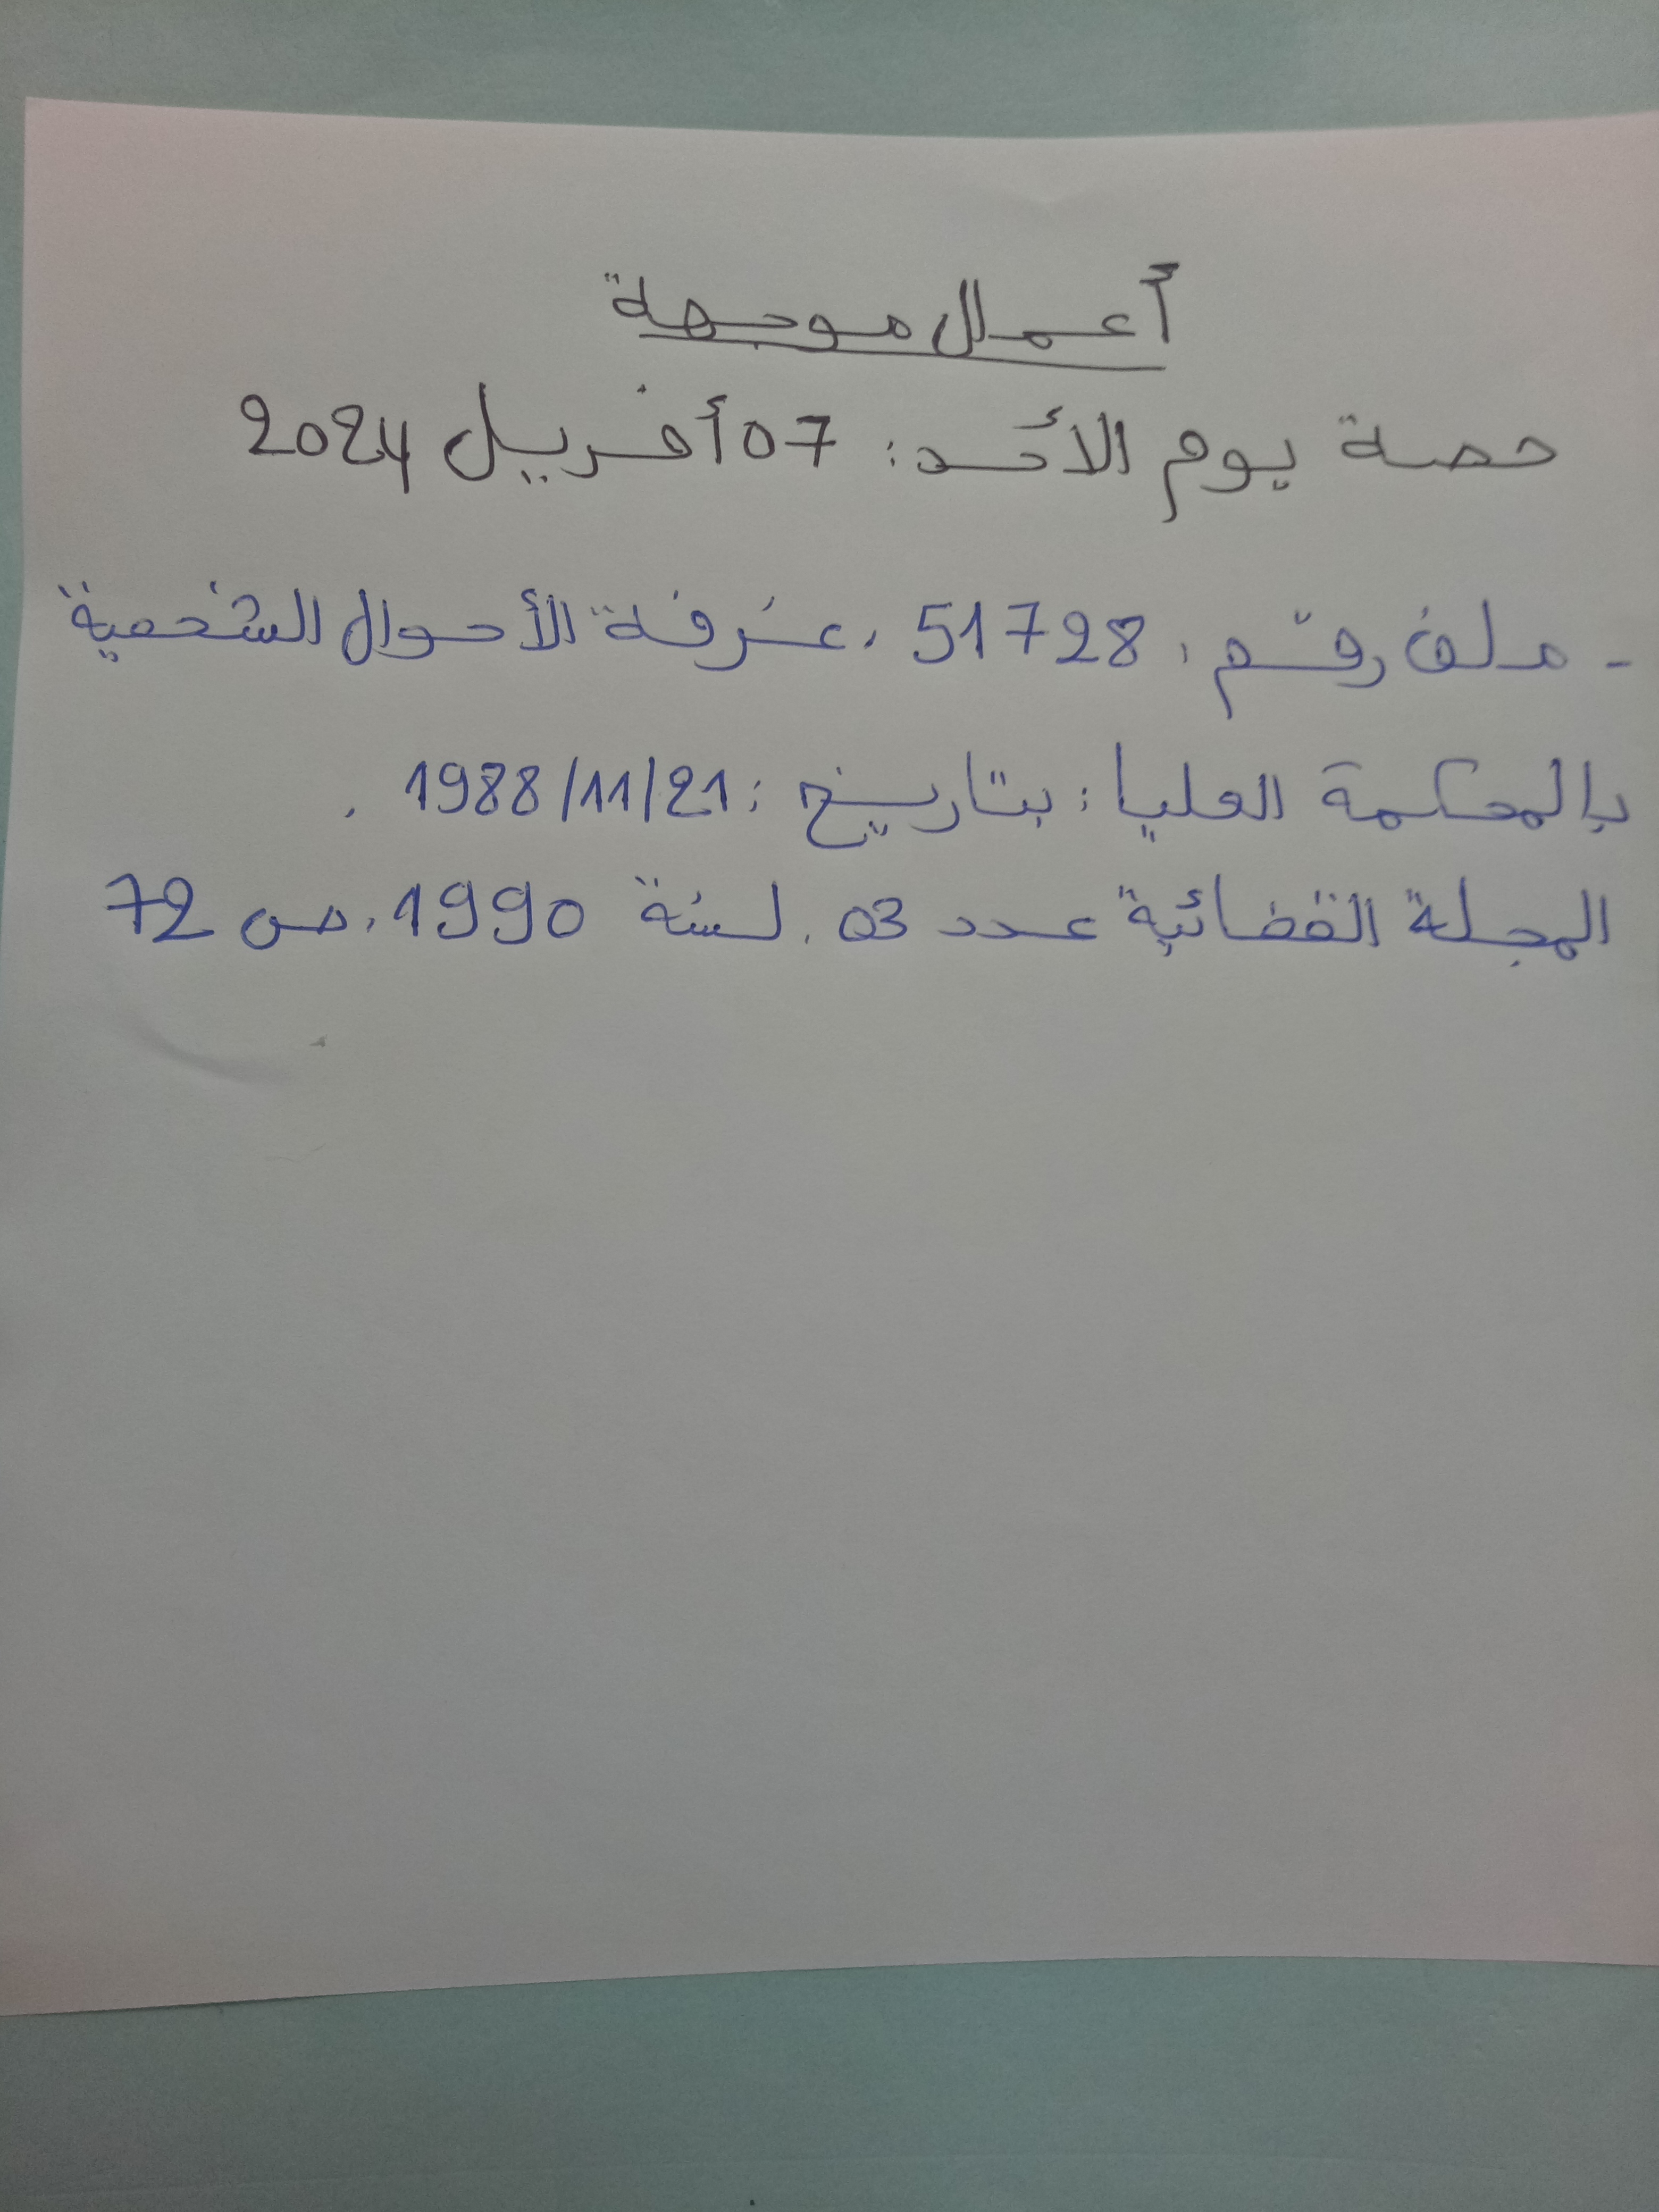 أعمال موجهة
حصة يوم الأحد: 07 أفريل 2024
- ملف رقم، 51728، غرفة الأحوال الشخصية
بالمحكمة العليا: بتاريخ: 1988/11/21.
المجلة القضائية عدد 03. لسنة 1990، ص 72